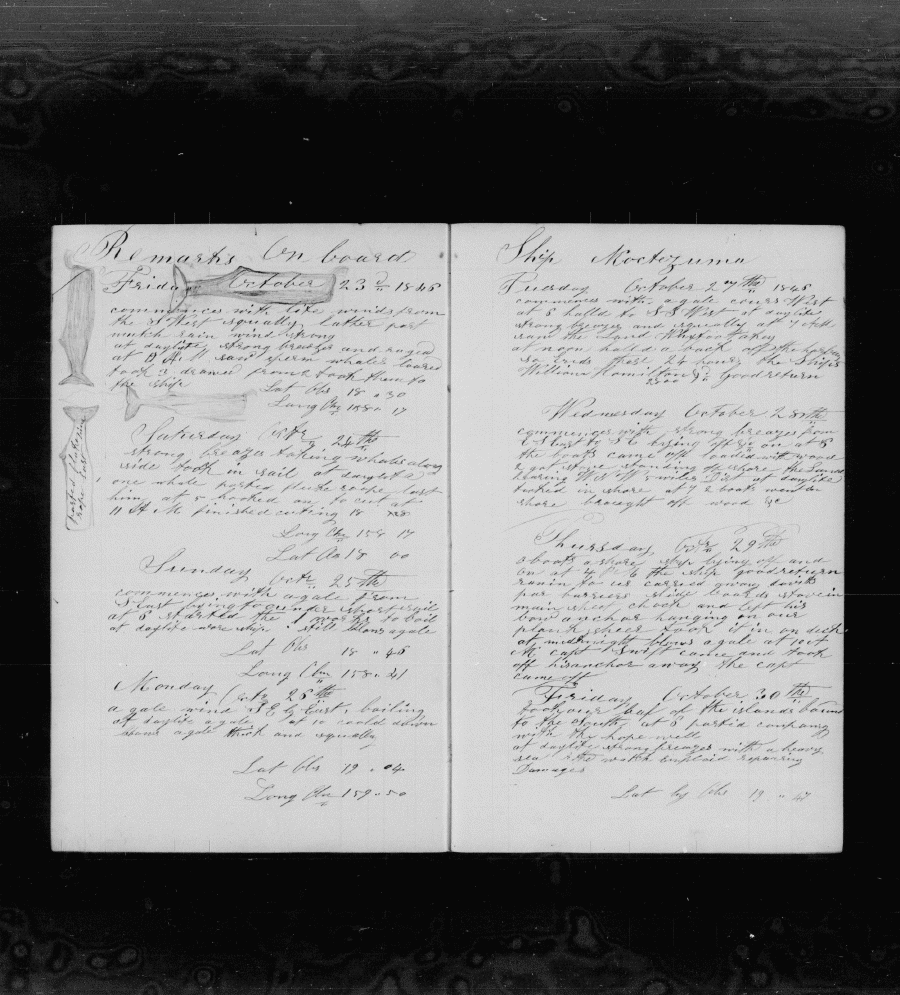 Remarks On board
Friday October 23 1846
commences with lite winds from
the S West squally latter part
much rain wind strong
at daylite strong breezes and ruged
at A M saw sperm whales loared
took 3 drawed from 1 took them to
the ship
Lat Obs 18 " 30
Long Chr 158 " 17
Saturday Octr 24th
strong breezes taking whales along
side took in sail at daylite
one whale parted fluke rope lost
him at 8 hooked on to cut at
11 A M finished cuting
Parted fluke
rope lost
Long Chr 158 17
Lat Obs 18 00
Sunday Octr 25th
commences with a gale from
S East lying to under short sail
at 6 started the works to boil
at daylite wore ship still blows a gale
Lat Obs 18 " 46
Long Chr 158 " 41
Monday Octr 26th
a gale wind S E by East boiling
at daylite a gale at 10 coold down
blows a gale thick and squally
Lat Obs 19 " 04
Long Chr 159 " 50
Ship Moctezuma
Tuesday October 27th 1846
commences with a gale cours West
at 6 halld to S S West at daylite
strong breezes and squally at 7 oclk
saw the Land
at noon hald a back off the harbour
so ends these 24 hours the Ships
William Hamilton & Goodreturn
2500
Wednesday October 28th
commences with strong breezes from
E S East to S E lying off & on at 6
the boats came off loaded with wood
2 got stove standing off shore the Land
bearing W N W 5 miles Dist at daylite
tacked in shore at 7 2 boats went in
shore brought off wood &c
Thursday Octr 29th
2 boats a shore ship lying off and
on at 4 P M the ship goodreturn
ran in to us carried away davits
par burciers slide boards stove in
main sheet chock and left his
bow anchor hanging on our
plank sheer took it in on deck
at midnight blows a gale at 10 A
M capt Swift came and took
off his anchor away the capt
came off
Friday October 30th
took our of the islands bound
to the South at 6 parted company
with the hope well
at daylite strong breezes with a heavy
sea the watch employed repairing
Damages
Lat by Obs 19 " 47